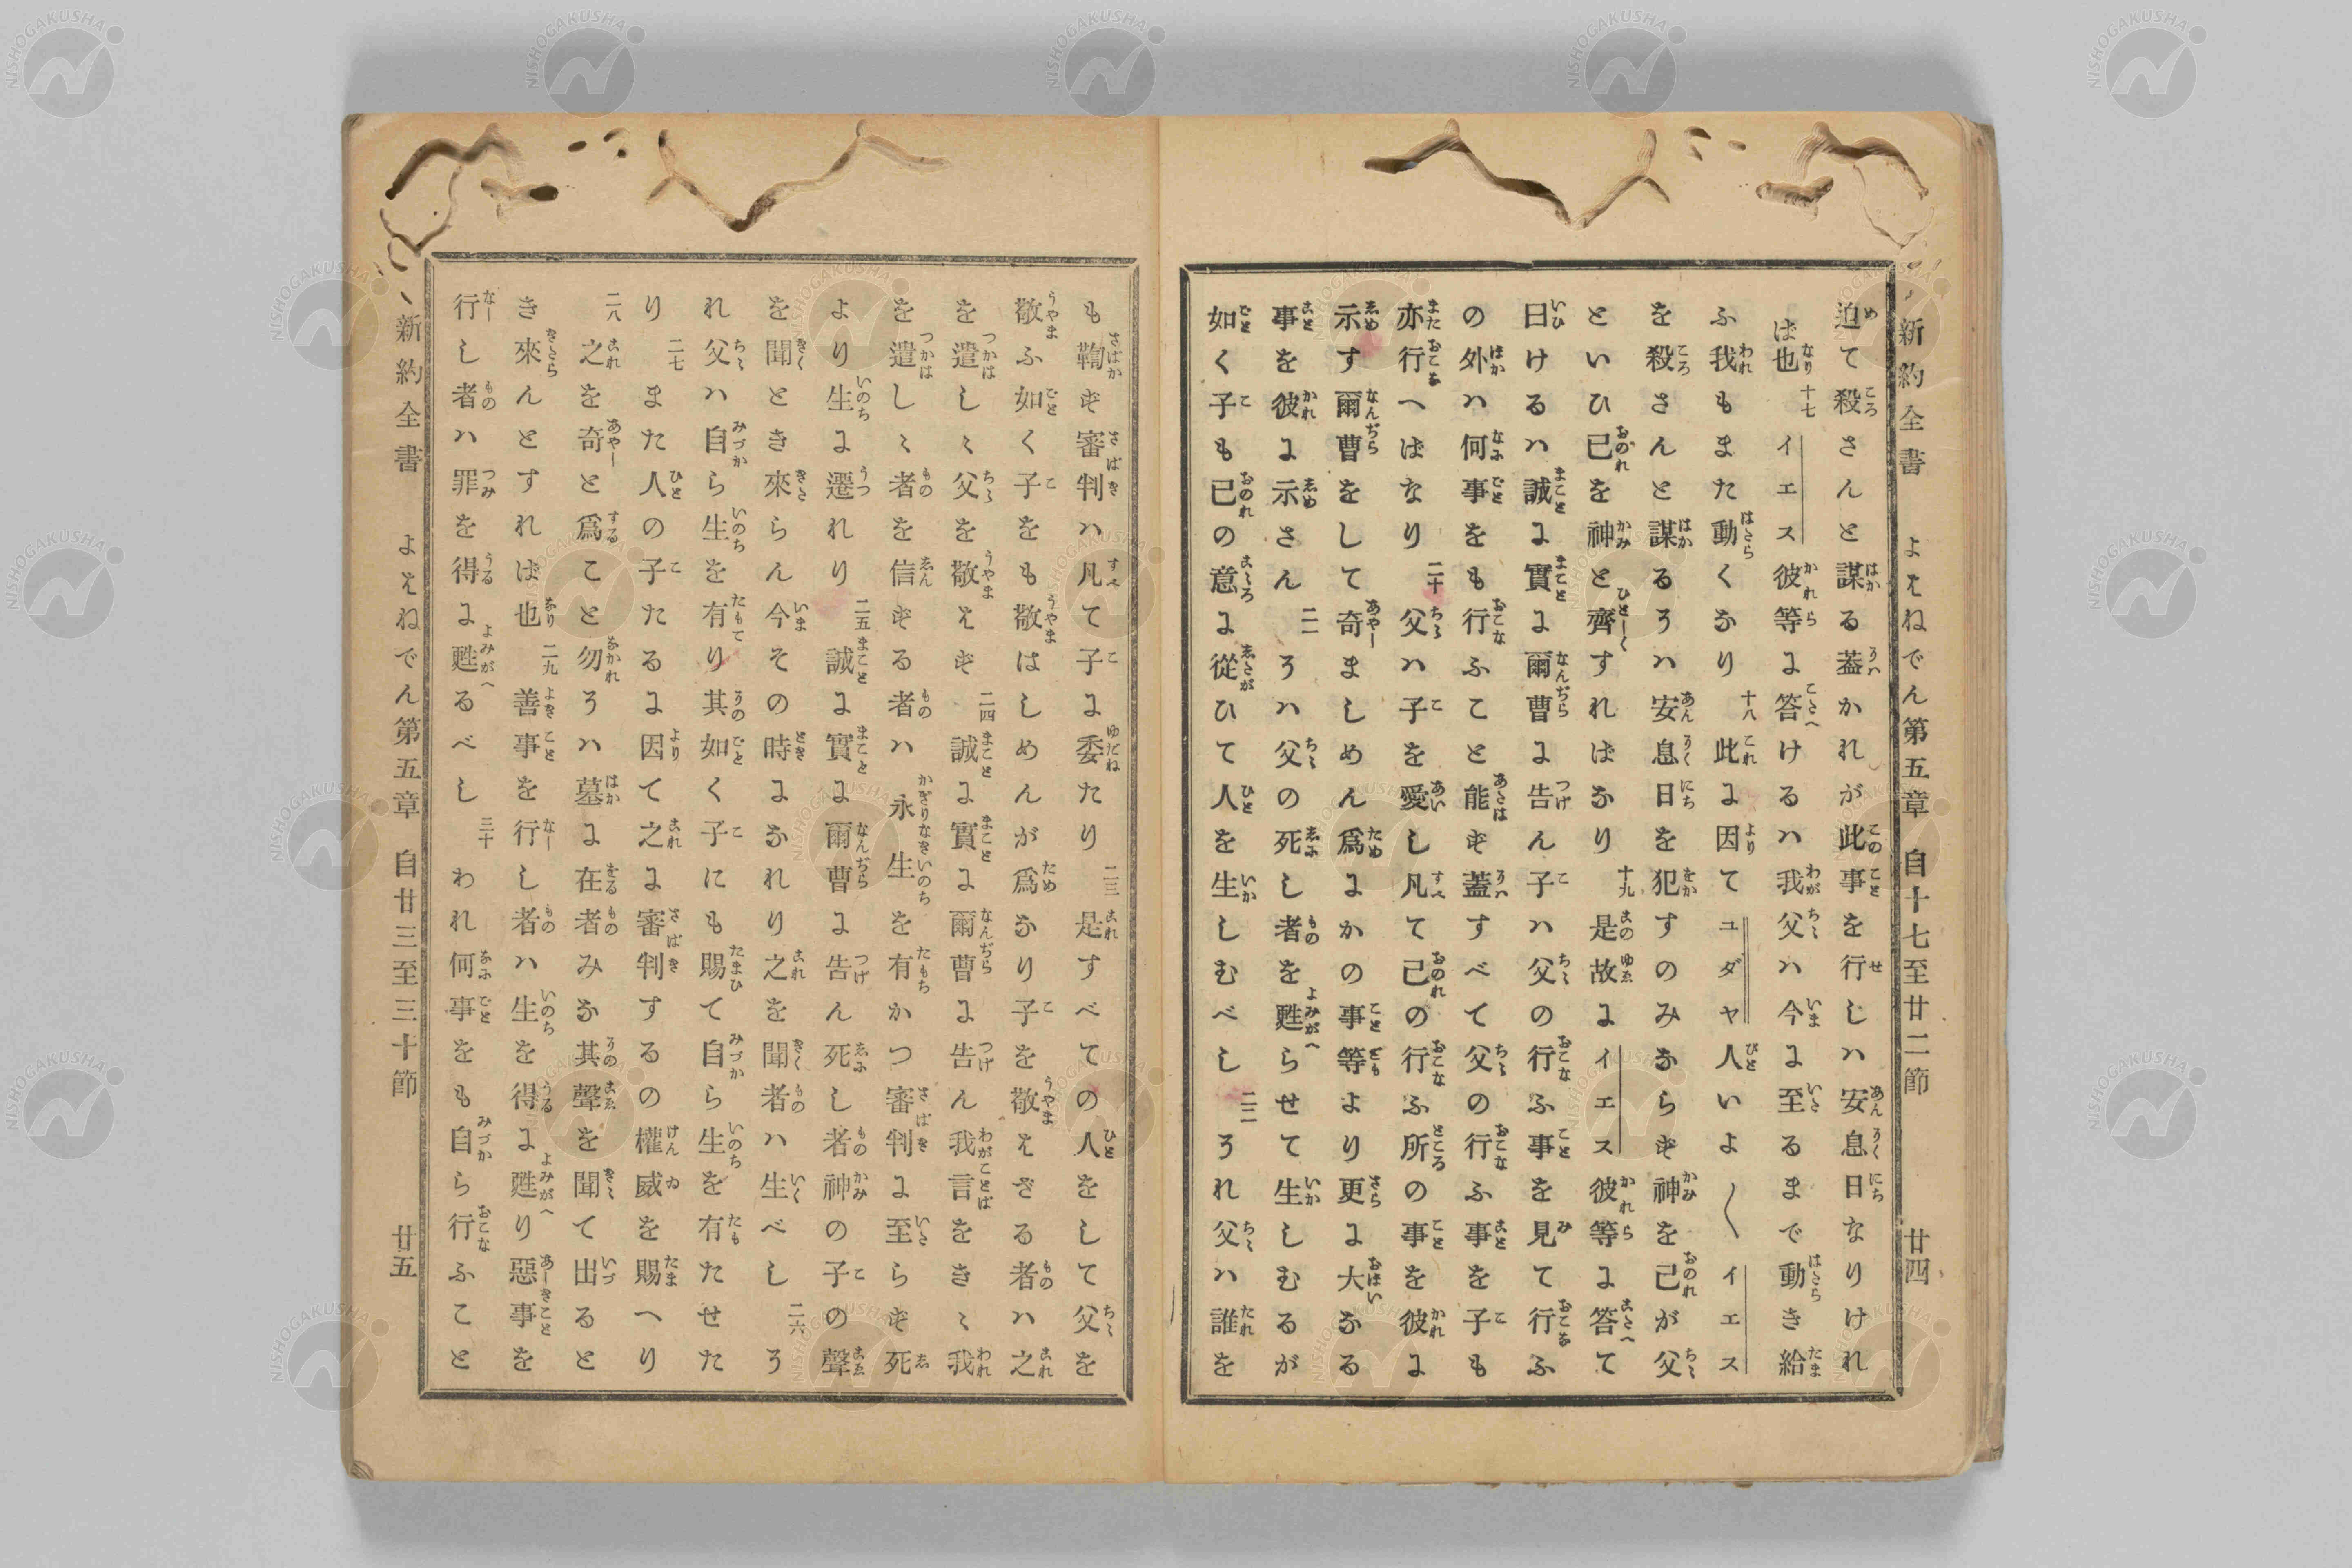 新約全書 よはねでん第五章 自十七至廿二節 廿四
迫て殺さんと謀る蓋かれが此事を行しハ安息日なりけれ
ば也 十七 イエス彼等に答けるハ我父ハ今に至るまで動き給
ふ我もまた動くなり 十八 此に因てユダヤ人いよ〱イエス
を殺さんと謀るそハ安息日を犯すのみならず神を己が父
といひ己を神と齊すればなり 十九 是故にイエス彼等に答て
曰けるハ誠に實に爾曹に告ん子ハ父の行ふ事を見て行ふ
の外ハ何事をも行ふこと能ず蓋すべて父の行ふ事を子も
亦行へばなり 二十 父ハ子を愛し凡て己の行ふ所の事を彼に
示す爾曹をして奇ましめん爲にかの事等より更に大なる
事を彼に示さん 二一 そハ父の死し者を甦らせて生しむるが
如く子も己の意に從ひて人を生しむべし 二二 それ父ハ誰を
も鞫ず審判ハ凡て子に委たり 二三 是すべての人をして父を
敬ふ如く子をも敬はしめんが爲なり子を敬はざる者ハ之
を遣しゝ父を敬はず 二四 誠に實に爾曹に告ん我言をきゝ我
を遣しゝ者を信ずる者ハ永生を有かつ審判に至らず死
より生に遷れり 二五 誠に實に爾曹に告ん死し者神の子の聲
を聞とき來らん今その時になれり之を聞者ハ生べし 二六 そ
れ父ハ自ら生を有り其如く子にも賜て自ら生を有たせた
り 二七 また人の子たるに因て之に審判するの權威を賜へり
二八 之を奇と爲こと勿そハ墓に在者みな其聲を聞て出ると
き來んとすれば也 二九 善事を行し者ハ生を得に甦り惡事を
行し者ハ罪を得に甦るべし 三十 われ何事をも自ら行ふこと
新約全書 よはねでん第五章 自廿三至三十節 廿五